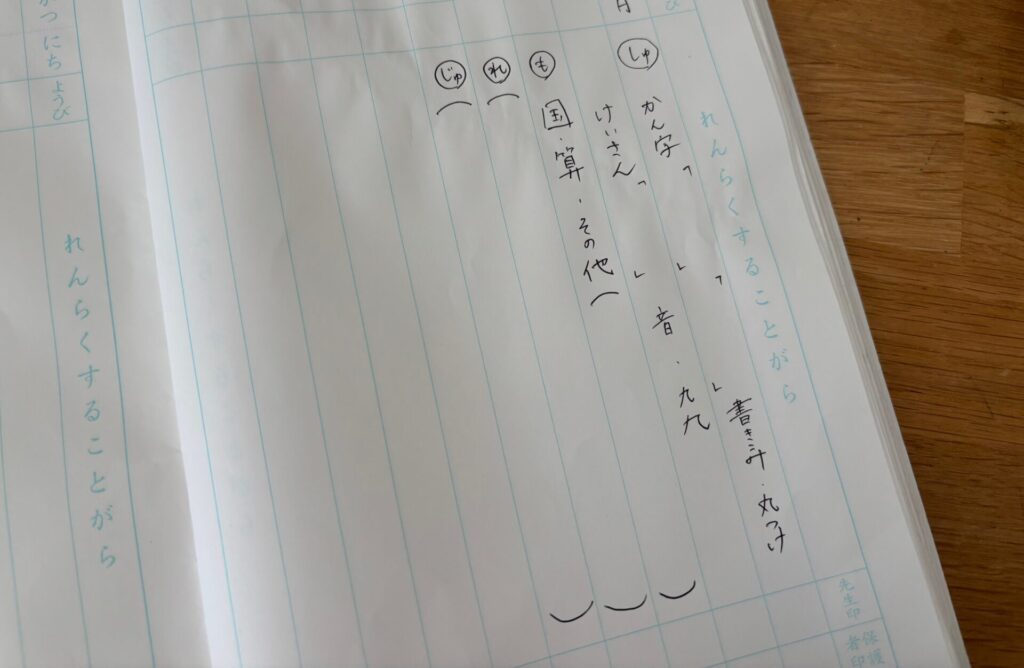 れんらくすることがら
先生印
保護者印
しゅ かん字「 」「 」書きこみ・丸つけ
けいさん「 」音・九九
も 国・算・その他( )
れ( )
じゅ( )
がつ にち ようび
れんらくすることがら